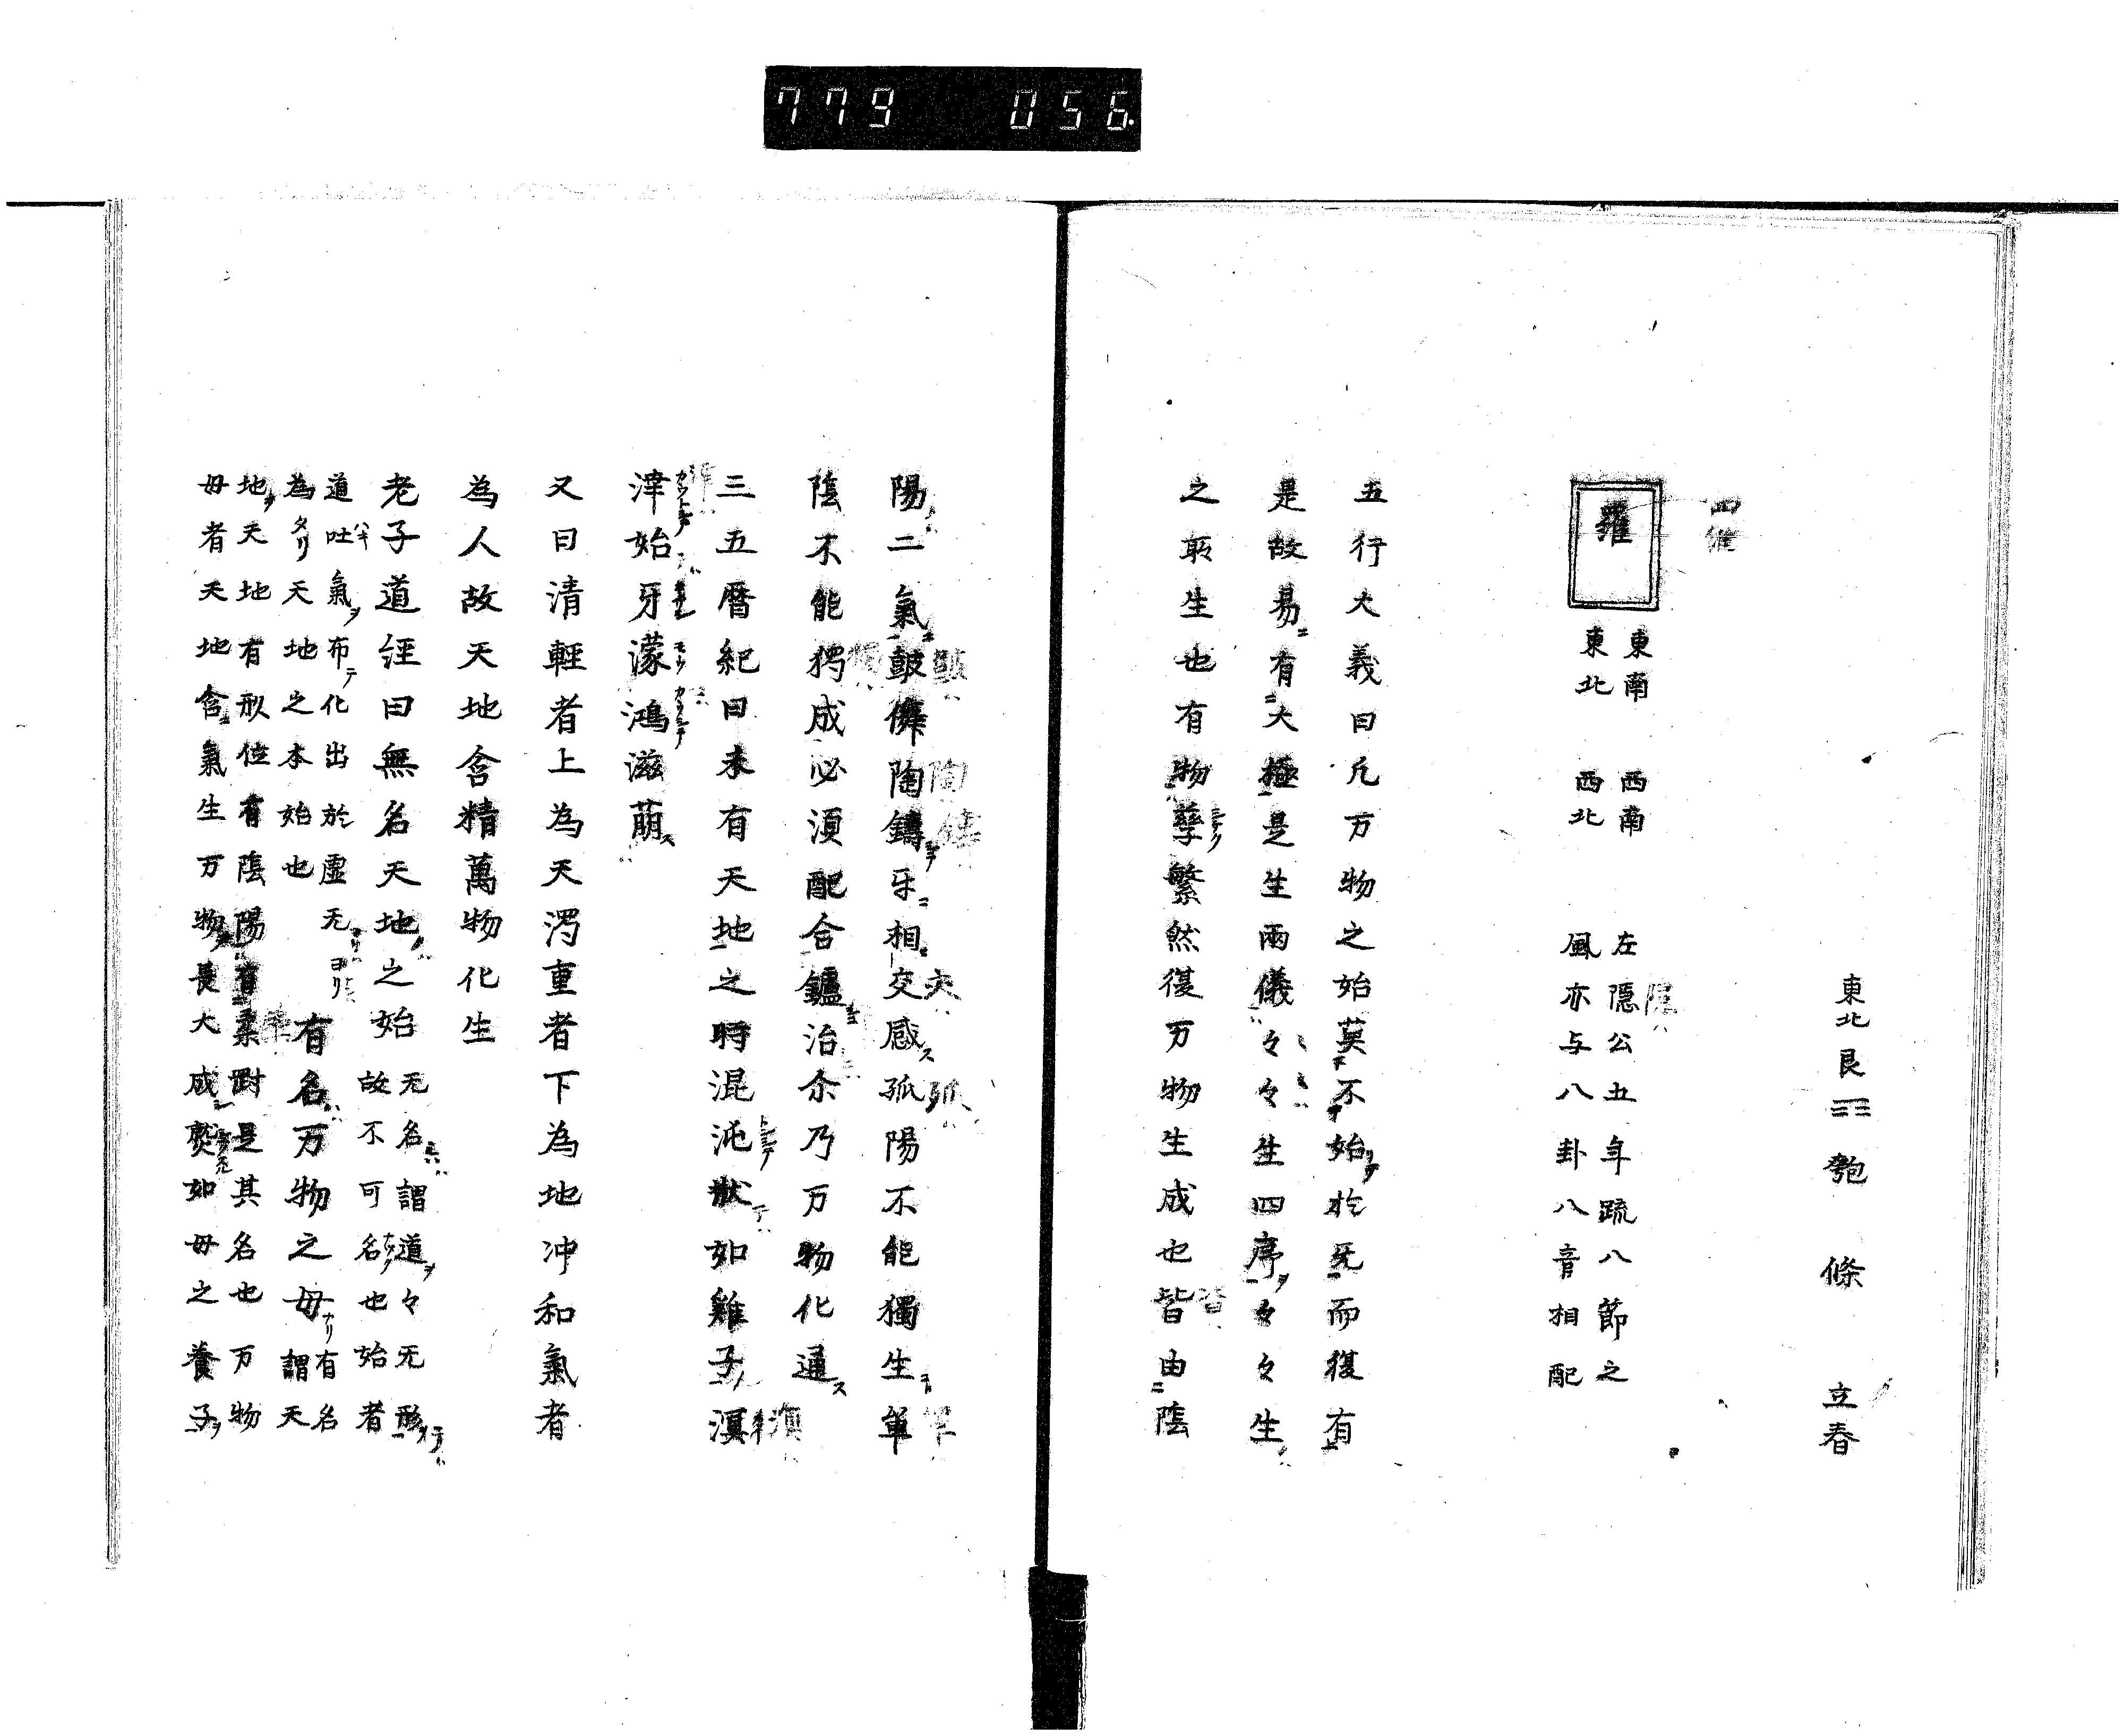 779 056
東北艮☶ 匏 條 立春
四維
羅
東南 西南 左隱公五年疏八節之
東北 西北 風亦与八卦八音相配
五行大義曰凡万物之始莫不始於无而復有
是故易有大極是生兩儀々々生四序々々生
之所生也有物孳繁然復万物生成也皆由陰
陽二氣鼓儛陶鑄牙相交感孤陽不能獨生單
陰不能獨成必須配合鑪冶尒乃万物化通
三五曆紀曰未有天地之時混沌狀如雞子溟
涬始牙濛鴻滋萌
又曰清輕者上為天濁重者下為地冲和氣者
為人故天地含精萬物化生
老子道經曰無名天地之始
无名謂道々无形
故不可名也始者
道吐氣布化出於虛无
為天地之本始也
有名万物之母
有名
謂天
地天地有形位有陰陽有柔對是其名也万物
母者天地含氣生万物長大成熟如母之養子